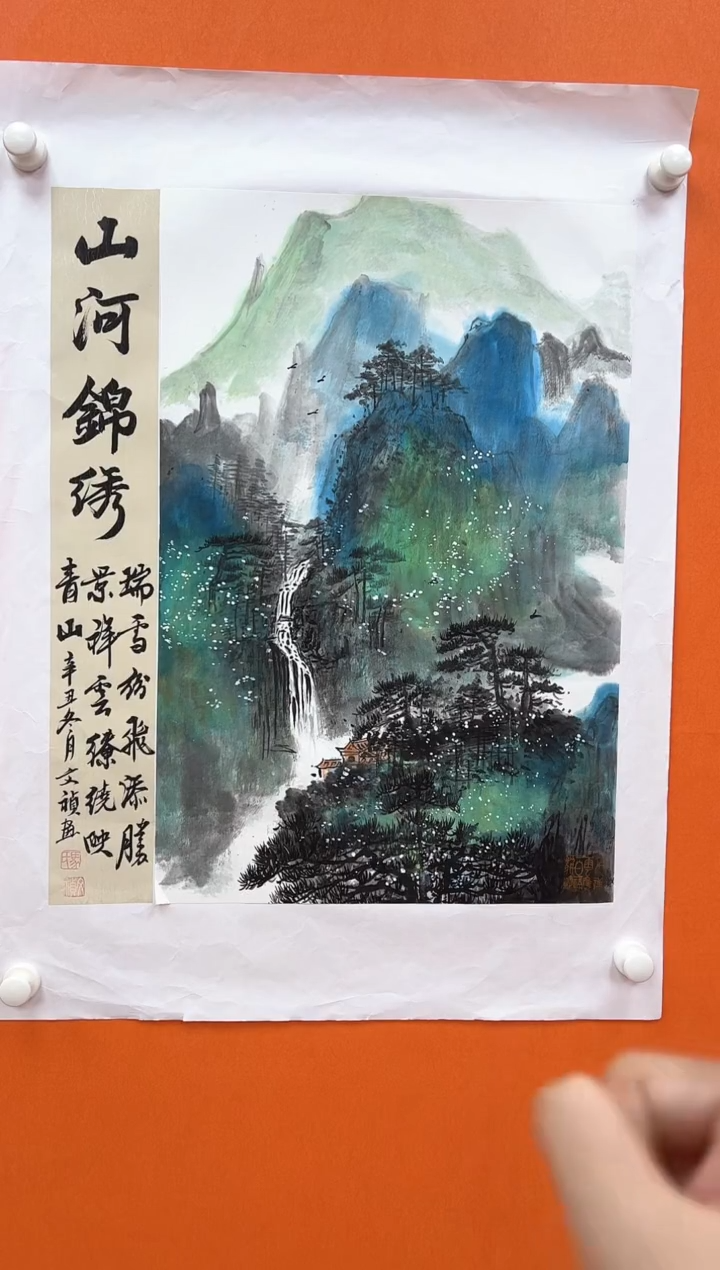 山河錦绣
瑞雪纷飛添勝
景祥雲繚繞映
青山 辛丑冬月文禎畫